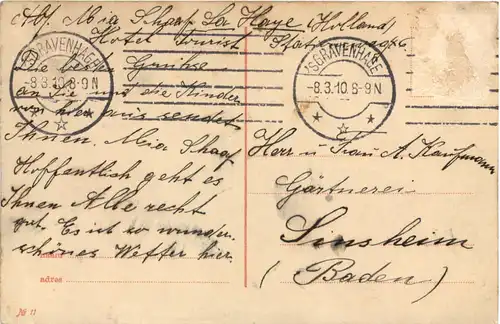 Abs. Mia Schaaf La Haye (Holland)
Hotel Tourist
Die besten Grüße
an Sie und die Kinder
von hier aus sendet
Ihnen. Mia Schaaf
Hoffentlich geht es
Ihnen Alle recht
gut. Es ist so wunder-
schönes Wetter hier.
ADRES
№ 11
'SGRAVENHAGE
8.3.10. 8-9N
'SGRAVENHAGE
8.3.10. 8-9N
Herr u Frau A. Kaufmann
Gärtnerei
Sinsheim
(Baden)